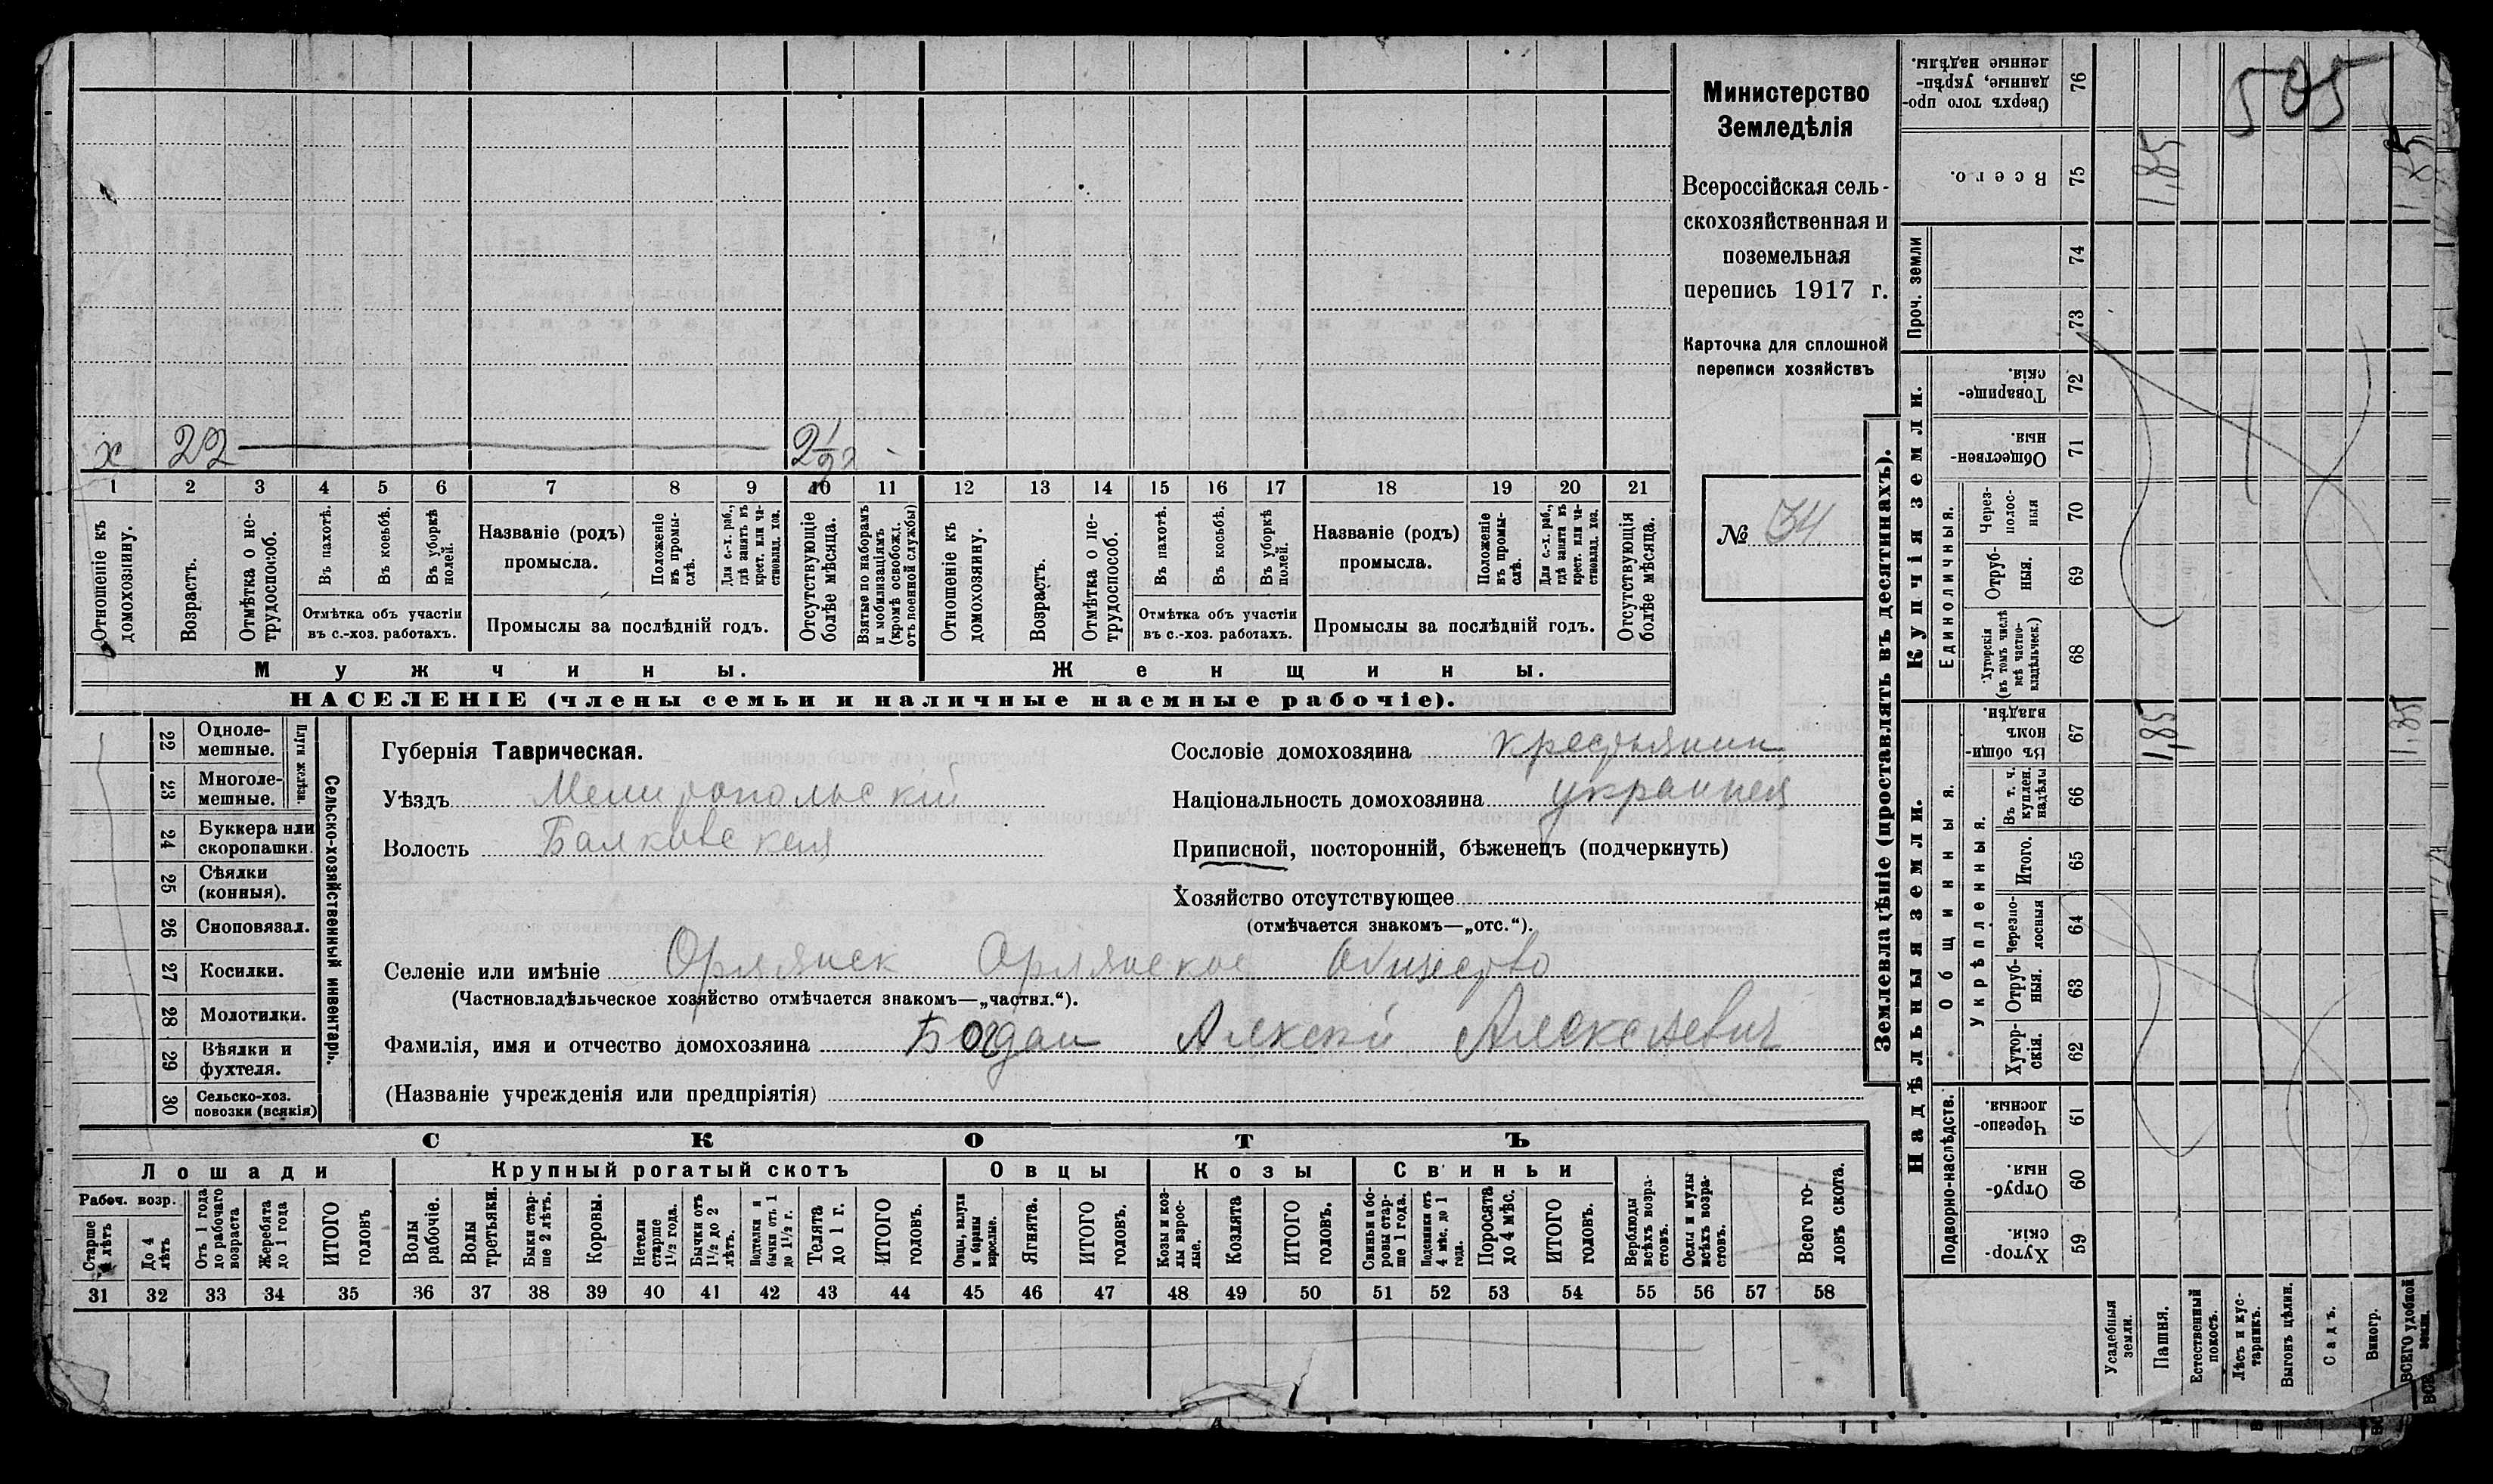 Министерство
Земледѣлія
Всероссійская сель-
скохозяйственная и
поземельная
перепись 1917 г.
Карточка для сплошной
переписи хозяйствъ
№ 34
505
х 22 2 1/2
1 2 3 4 5 6 7 8 9 10 11 12 13 14 15 16 17 18 19 20 21
Отношеніе къ домохозяину.
Возрастъ.
Отмѣтка о не-трудоспособ.
Въ пахотѣ.
Въ косьбѣ.
Въ уборкѣ полей.
Отмѣтка объ участіи
въ с.-хоз. работахъ.
Названіе (родъ)
промысла.
Положеніе въ промы-слѣ.
Для с.-х. раб., гдѣ занятъ въ крест. или ча-стновлад. хоз.
Промыслы за послѣдній годъ.
Отсутствующіе болѣе мѣсяца.
Взятые по наборамъ и мобилизаціямъ (кромѣ освобожд. отъ военной службы)
Отношеніе къ домохозяину.
Возрастъ.
Отмѣтка о не-трудоспособ.
Въ пахотѣ.
Въ косьбѣ.
Въ уборкѣ полей.
Отмѣтка объ участіи
въ с.-хоз. работахъ.
Названіе (родъ)
промысла.
Положеніе въ промы-слѣ.
Для с.-х. раб., гдѣ занята въ крест. или ча-стновлад. хоз.
Промыслы за послѣдній годъ.
Отсутствующія болѣе мѣсяца.
Мужчины.
Женщины.
НАСЕЛЕНІЕ (члены семьи и наличные наемные рабочіе).
Сельско-хозяйственный инвентарь.
Плуги желѣзн.
22 Однолемешные.
23 Многоле-мешные.
24 Буккера или скоропашки.
25 Сѣялки (конныя).
26 Сноповязал.
27 Косилки.
28 Молотилки.
29 Вѣялки и фухтеля.
30 Сельско-хоз. повозки (всякія)
Губернія Таврическая.
Уѣздъ Мелитопольскій
Волость Балковская
Сословіе домохозяина крестьянин
Національность домохозяина украинец
Приписной, посторонній, бѣженецъ (подчеркнуть)
Хозяйство отсутствующее
(отмѣчается знакомъ—„отс.“).
Селеніе или имѣніе Орлянск Орлянское общество
(Частновладѣльческое хозяйство отмѣчается знакомъ—„частвл.“).
Фамилія, имя и отчество домохозяина Богдан Алексѣй Алексѣевич
(Названіе учрежденія или предпріятія)
СКОТЪ
Лошади
Крупный рогатый скотъ
Овцы
Козы
Свиньи
Рабоч. возр.
Старше 4 лѣтъ
До 4 лѣтъ
Отъ 1 года до рабочаго возраста
Жеребята до 1 года
ИТОГО головъ
Волы рабочіе.
Волы третьяки.
Быки стар-ше 2 лѣтъ.
Коровы.
Нетели старше 1½ года.
Бычки отъ 1½ до 2 лѣтъ.
Подтелки и бычки отъ 1 до 1½ г.
Телята до 1 г.
ИТОГО головъ.
Овцы, валухи и бараны взрослые.
Ягнята.
ИТОГО головъ.
Козы и коз-лы взрос-лые.
Козлята
ИТОГО головъ.
Свиньи и бо-ровы стар-ше 1 года.
Подсвинки отъ 4 мѣс. до 1 года.
Поросята до 4 мѣс.
ИТОГО головъ.
Верблюды всѣхъ возра-стовъ.
Ослы и мулы всѣхъ возра-стовъ.
Всего го-ловъ скота.
31 32 33 34 35 36 37 38 39 40 41 42 43 44 45 46 47 48 49 50 51 52 53 54 55 56 57 58
Землевладѣніе (проставлять въ десятинахъ).
Надѣльныя земли.
Купчія земли.
Проч. земли
Подворно-наслѣдств.
Общинныя.
Укрѣпленныя.
Единоличныя.
59 Хутор-скія.
60 Отруб-ныя.
61 Черезпо-лосныя.
62 Хутор-скія.
63 Отруб-ныя.
64 Черезпо-лосныя
65 Итого.
66 Въ т. ч. куплен. надѣлы
67 Въ общин-номъ владѣн.
68 Хуторскія (въ томъ числѣ всѣ частно-владѣльческ.)
69 Отруб-ныя.
70 Через-полос-ныя
71 Обществен-ныя.
72 Товарище-скія.
73
74
75 Всего.
76 Сверхъ того про-данные, укрѣп-ленные надѣлы.
Усадебныя земли.
Пашня.
Естественный покосъ.
Лѣсъ и кус-тарникъ.
Выгонъ цѣлин.
Садъ.
Виногр.
ВСЕГО удобной земли.
1,85
1,85
1,85
1,85